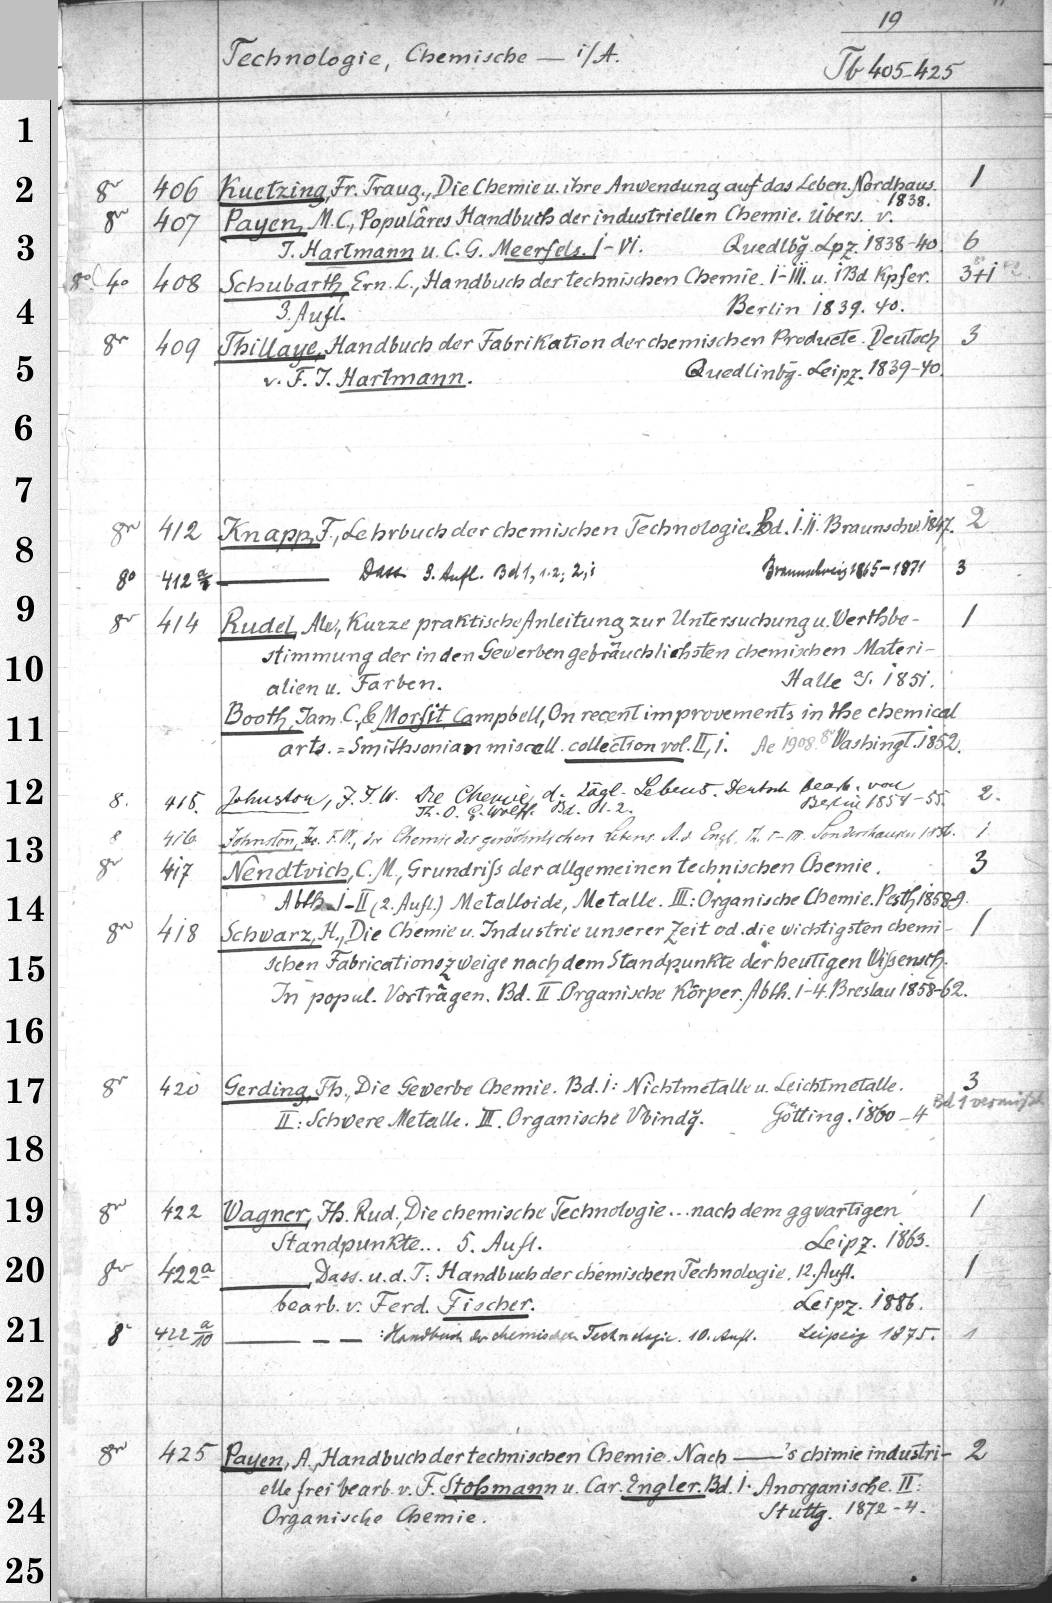 19
Technologie, Chemische — i/A. Tb 405-425
1
2 8vo 406 Kuetzing, Fr. Traug., Die Chemie u. ihre Anwendung auf das Leben. Nordhaus. 1
1838.
8vo 407 Payen, M. C., Populäres Handbuch der industriellen Chemie. Übers. v.
3 T. Hartmann u. C. G. Meerfels. I-VI. Quedlbg. Lpz. 1838-40 6
8o 4o 408 Schubarth, Ern. L., Handbuch der technischen Chemie. I-III. u. 1 Bd Kpfer. 3+1
4 3. Aufl. Berlin 1839. 40.
8vo 409 Thillaye, Handbuch der Fabrikation der chemischen Producte. Deutsch 3
5 v. F. T. Hartmann. Quedlinbg. Leipz. 1839-40.
6
7
8vo 412 Knapp, F., Lehrbuch der chemischen Technologie. Bd. I. II. Braunschw. 1847. 2
8
8o 412 a — Dass. 3. Aufl. Bd 1, 1.2; 2,1 Braunschweig 1865-1871 3
9 8vo 414 Rudel, Alw., Kurze praktische Anleitung zur Untersuchung u. Werthbe- 1
stimmung der in den Gewerben gebräuchlichsten chemischen Materi-
10 alien u. Farben. Halle a/S. 1851.
11 Booth, Jam. C. & Morfit, Campbell, On recent improvements in the chemical
arts. = Smithsonian miscell. collection vol. II, 1. Ae 1908 8o Washingt. 1852.
12 8. 415. Johnston, J. F. W. Die Chemie d. tägl. Lebens. Deutsch bearb. von 2.
Th. O. G. Wolff. Bd. 1. 2. Berlin 1854-55.
8 416 Johnston, Jas. F. W., die Chemie des gewöhnlichen Lebens. A. d. Engl. Th. I-III. Sondershausen 1856. 1
13 8vo 417 Nendtvich, C. M., Grundriss der allgemeinen technischen Chemie. 3
14 Abth. I-II (2. Aufl.) Metalloide, Metalle. III: Organische Chemie. Pesth 1858-9.
8vo 418 Schwarz, H., Die Chemie u. Industrie unserer Zeit od. die wichtigsten chemi- 1
15 schen Fabricationszweige nach dem Standpunkte der heutigen Wissensch.
In popul. Vorträgen. Bd. II Organische Körper. Abth. 1-4. Breslau 1858-62.
16
17 8vo 420 Gerding, Th., Die Gewerbe Chemie. Bd. I: Nichtmetalle u. Leichtmetalle. 3
II: Schwere Metalle. III. Organische Vbindg. Götting. 1860-4 Bd 1 vermisst
18
19 8vo 422 Wagner, Jh. Rud., Die chemische Technologie... nach dem ggwärtigen 1
Standpunkte... 5. Aufl. Leipz. 1863.
20 8vo 422a — Dass. u. d. T: Handbuch der chemischen Technologie. 12. Aufl. 1
bearb. v. Ferd. Fischer. Leipz. 1886.
21 8o 422 a/10 — – – : Handbuch der chemischen Technologie. 10. Aufl. Leipzig 1875. 1
22
23 8vo 425 Payen, A., Handbuch der technischen Chemie. Nach —'s chimie industri- 2
elle frei bearb. v. F. Stohmann u. Car. Engler. Bd. I. Anorganische. II:
24 Organische Chemie. Stuttg. 1872-4.
25